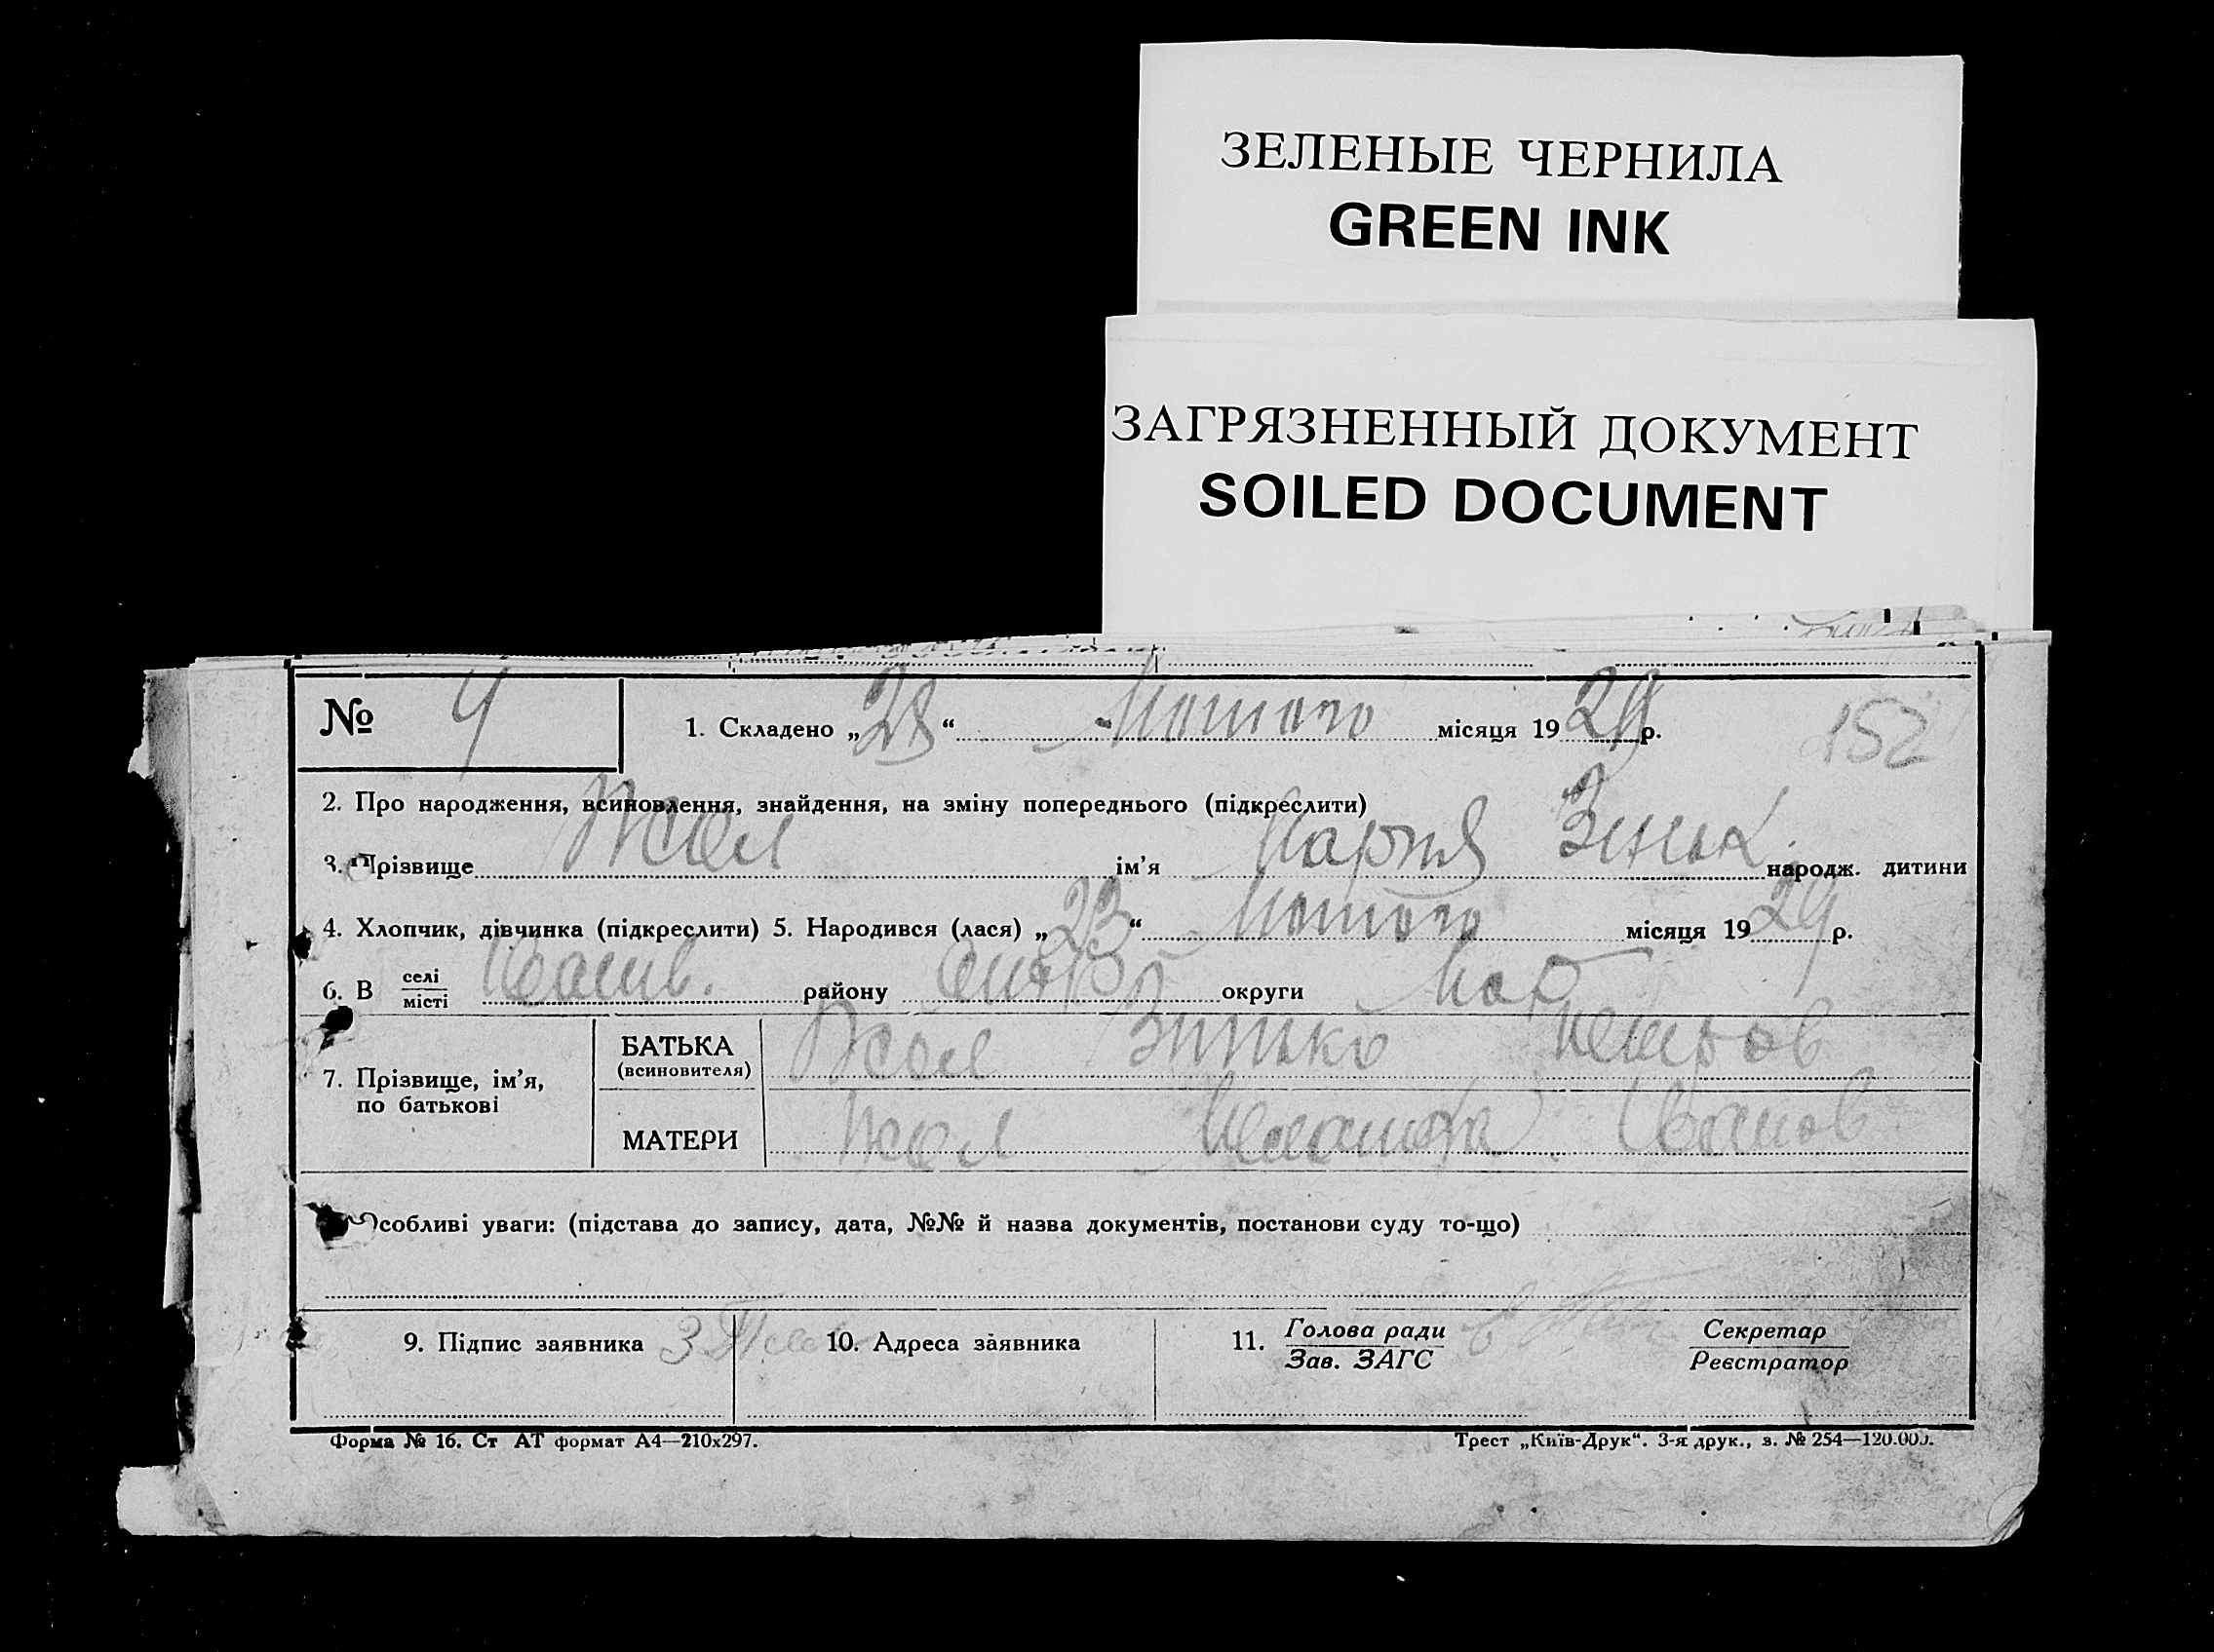 ЗЕЛЕНЫЕ ЧЕРНИЛА
GREEN INK
ЗАГРЯЗНЕННЫЙ ДОКУМЕНТ
SOILED DOCUMENT
№ 4 1. Складено „28“ Лютого місяця 1929 р. 152
2. Про народження, всиновлення, знайдення, на зміну попереднього (підкреслити)
3. Прізвище ім'я Мария Зиньк. народж. дитини
4. Хлопчик, дівчинка (підкреслити) 5. Народився (лася) „23“ Лютого місяця 1929 р.
6. В селі/місті району округи
7. Прізвище, ім'я, по батькові
БАТЬКА (всиновителя) Зинько
МАТЕРИ Иванов
Особливі уваги: (підстава до запису, дата, №№ й назва документів, постанови суду то-що)
9. Підпис заявника 10. Адреса заявника 11. Голова ради/Зав. ЗАГС Секретар/Реєстратор
Форма № 16. Ст АТ формат А4—210х297. Трест „Київ-Друк“. 3-я друк., з. № 254—120.000.